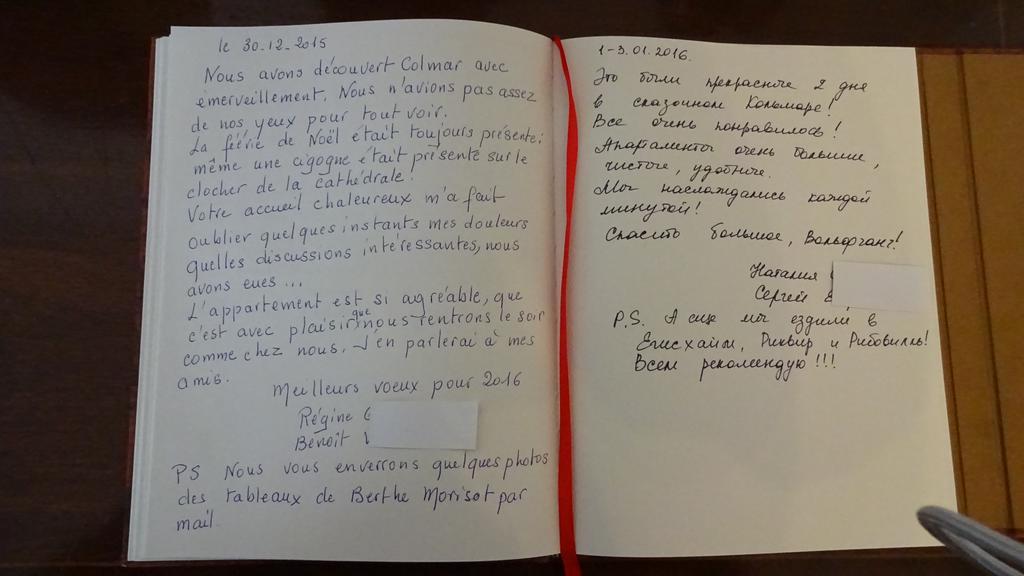 le 30.12.2015
Nous avons découvert Colmar avec
émerveillement. Nous n'avions pas assez
de nos yeux pour tout voir.
La féérie de Noël était toujours présente :
même une cigogne était présente sur le
clocher de la cathédrale !
Votre accueil chaleureux m'a fait
oublier quelques instants mes douleurs
quelles discussions intéressantes, nous
avons eues ...
L'appartement est si agréable, que
c'est avec plaisir que nous rentrons le soir
comme chez nous. J'en parlerai à mes
amis.
Meilleurs voeux pour 2016
Régine
Benoît
PS Nous vous enverrons quelques photos
des tableaux de Berthe Morisot par
mail.
1-3.01.2016.
Это были прекрасные 2 дня
в сказочном Кольмаре!
Все очень понравилось!
Апараменты очень большие,
чистые, удобные.
Мы наслаждались каждой
минутой!
Спасибо большое, Вольфганг!
Наталия
Сергей
P.S. А еще мы ездили в
Егисхайм, Риквир и Рибовилль!
Всем рекомендую!!!